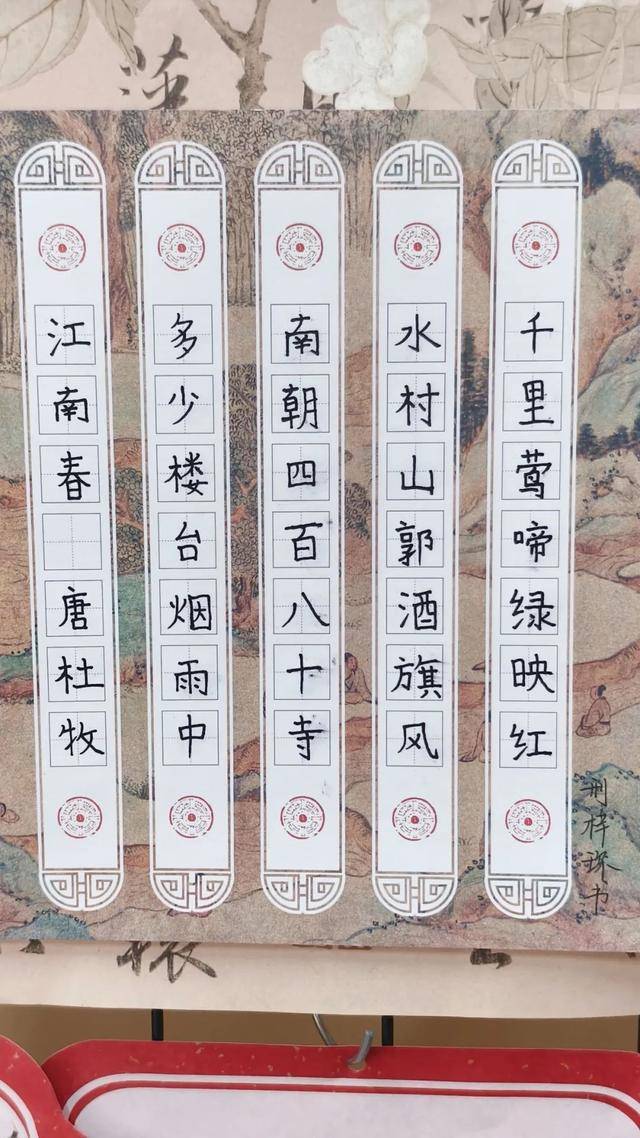 千里莺啼绿映红
水村山郭酒旗风
南朝四百八十寺
多少楼台烟雨中
江南春 唐杜牧
梓 书